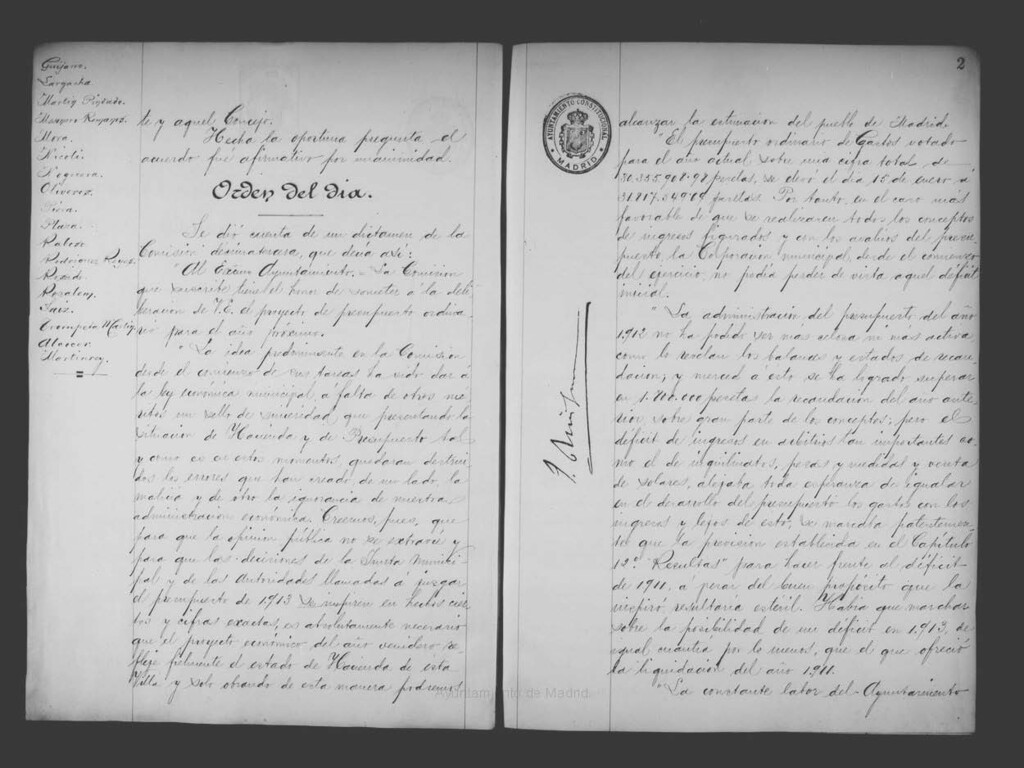 Guijarro.
Largacha
Martin Pindado.
Mora.
Nicoli.
Noguera.
Oliveros.
Piera.
Plaza.
Rodriguez
Rosado.
Rosalem.
Saiz.
Alarcon
Martinez.
te y aquel Concejo.
Hecha la oportuna pregunta, el
acuerdo fué afirmativo por unanimidad.
Orden del dia.
Se dió cuenta de un dictamen de la
Comisión desinsaculada, que decía así:
"Al Excmo Ayuntamiento. La Comisión
que suscribe tiene el honor de someter á la deli-
beración de V.E. el proyecto de presupuesto ordina-
rio para el año próximo.
"La idea predominante en la Comisión
desde el comienzo de sus tareas ha sido dar á
la ley económica municipal, á falta de otros me-
ritos un sello de sinceridad, que presentando la
situación de Hacienda y de Presupuesto tal
y como es en estos momentos, quedaran destrui-
dos los errores que han creado, de un lado, la
malicia y de otro la ignorancia de nuestra
administración económica. Creemos, pues, que
para que la opinión pública no se extravíe y
para que las decisiones de la Junta Munici-
pal y de las Autoridades llamadas á juzgar
el presupuesto de 1913 se inspiren en hechos cier-
tos y cifras exactas, es absolutamente necesario
que el proyecto económico del año venidero re-
fleje fielmente el estado de Hacienda de esta
Villa y solo obrando de esta manera podremos
AYUNTAMIENTO CONSTITUCIONAL
MADRID
2
alcanzar la estimación del pueblo de Madrid.
"El presupuesto ordinario de Gastos votado
para el año actual sobre una cifra total de
30.355.908'98 pesetas, se elevó el dia 15 de enero á
pesetas. Por tanto, en el caso más
favorable de que se realizaran todos los conceptos
de ingresos figurados y con los arbitrios del presu-
puesto, la Corporación municipal, desde el comienzo
del ejercicio no podía perder de vista aquel déficit
inicial.
"La administración del presupuesto del año
1912 no ha podido ser más celosa ni más activa
como lo revelan los balances y estados de recau-
dación; y merced á esto se ha logrado superar
en pesetas la recaudación del año ante-
rior, sobre gran parte de los conceptos; pero el
déficit de ingresos en arbitrios tan importantes co-
mo el de inquilinatos, pesas y medidas y venta
de solares, alejaba toda esperanza de igualar
en el desarrollo del presupuesto los gastos con los
ingresos y lejos de esto, se marcaba patentemen-
te que la previsión establecida en el Capítulo
12º "Resultas" para hacer frente al déficit
de 1911, á pesar del buen propósito que la
inspiró resultaria estéril. Había que marchar
sobre la posibilidad de un déficit en 1913, de
igual cuantía por lo menos, que el que ofreció
la liquidación del año 1911.
"La constante labor del Ayuntamiento
Ayuntamiento de Madrid